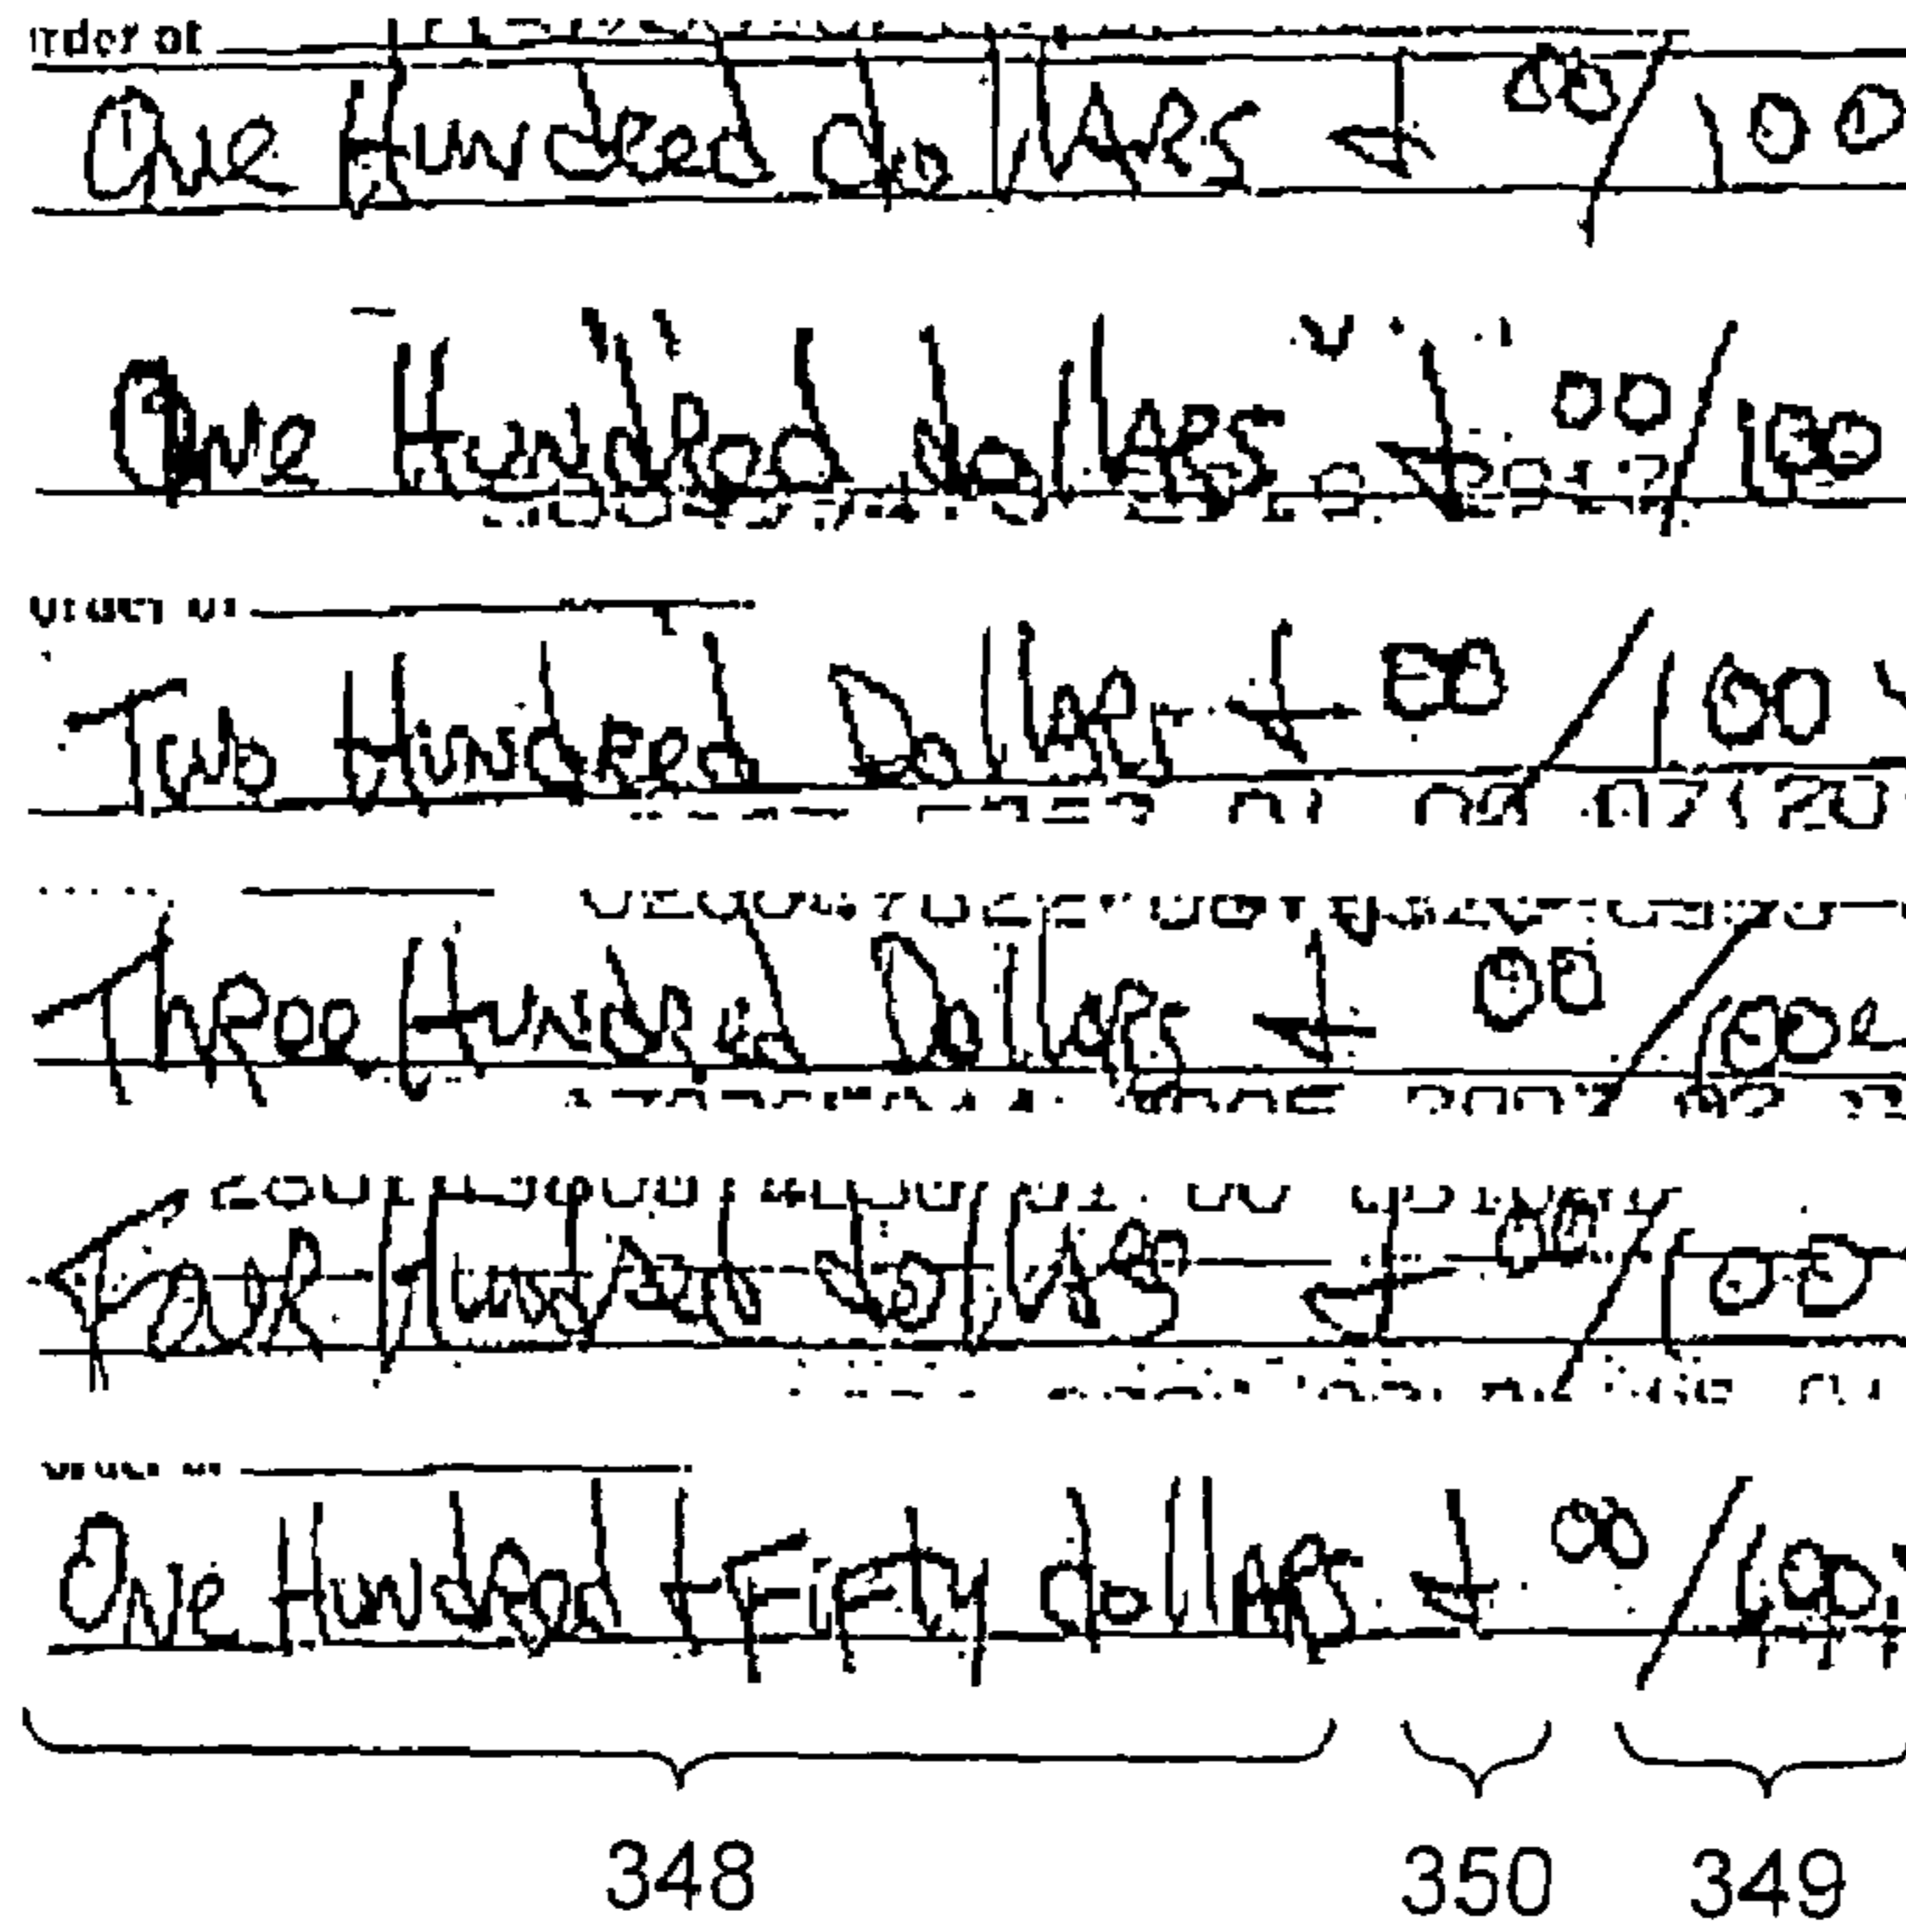 order of
One Hundred dollars + 00/100
One Hundred dollars + 00/100
order of
Two Hundred Dollars + 00/100
Three Hundred Dollars + 00/100
Hundred dollars + 00/100
order of
One Hundred + Fifty dollars + 00/100
348 350 349